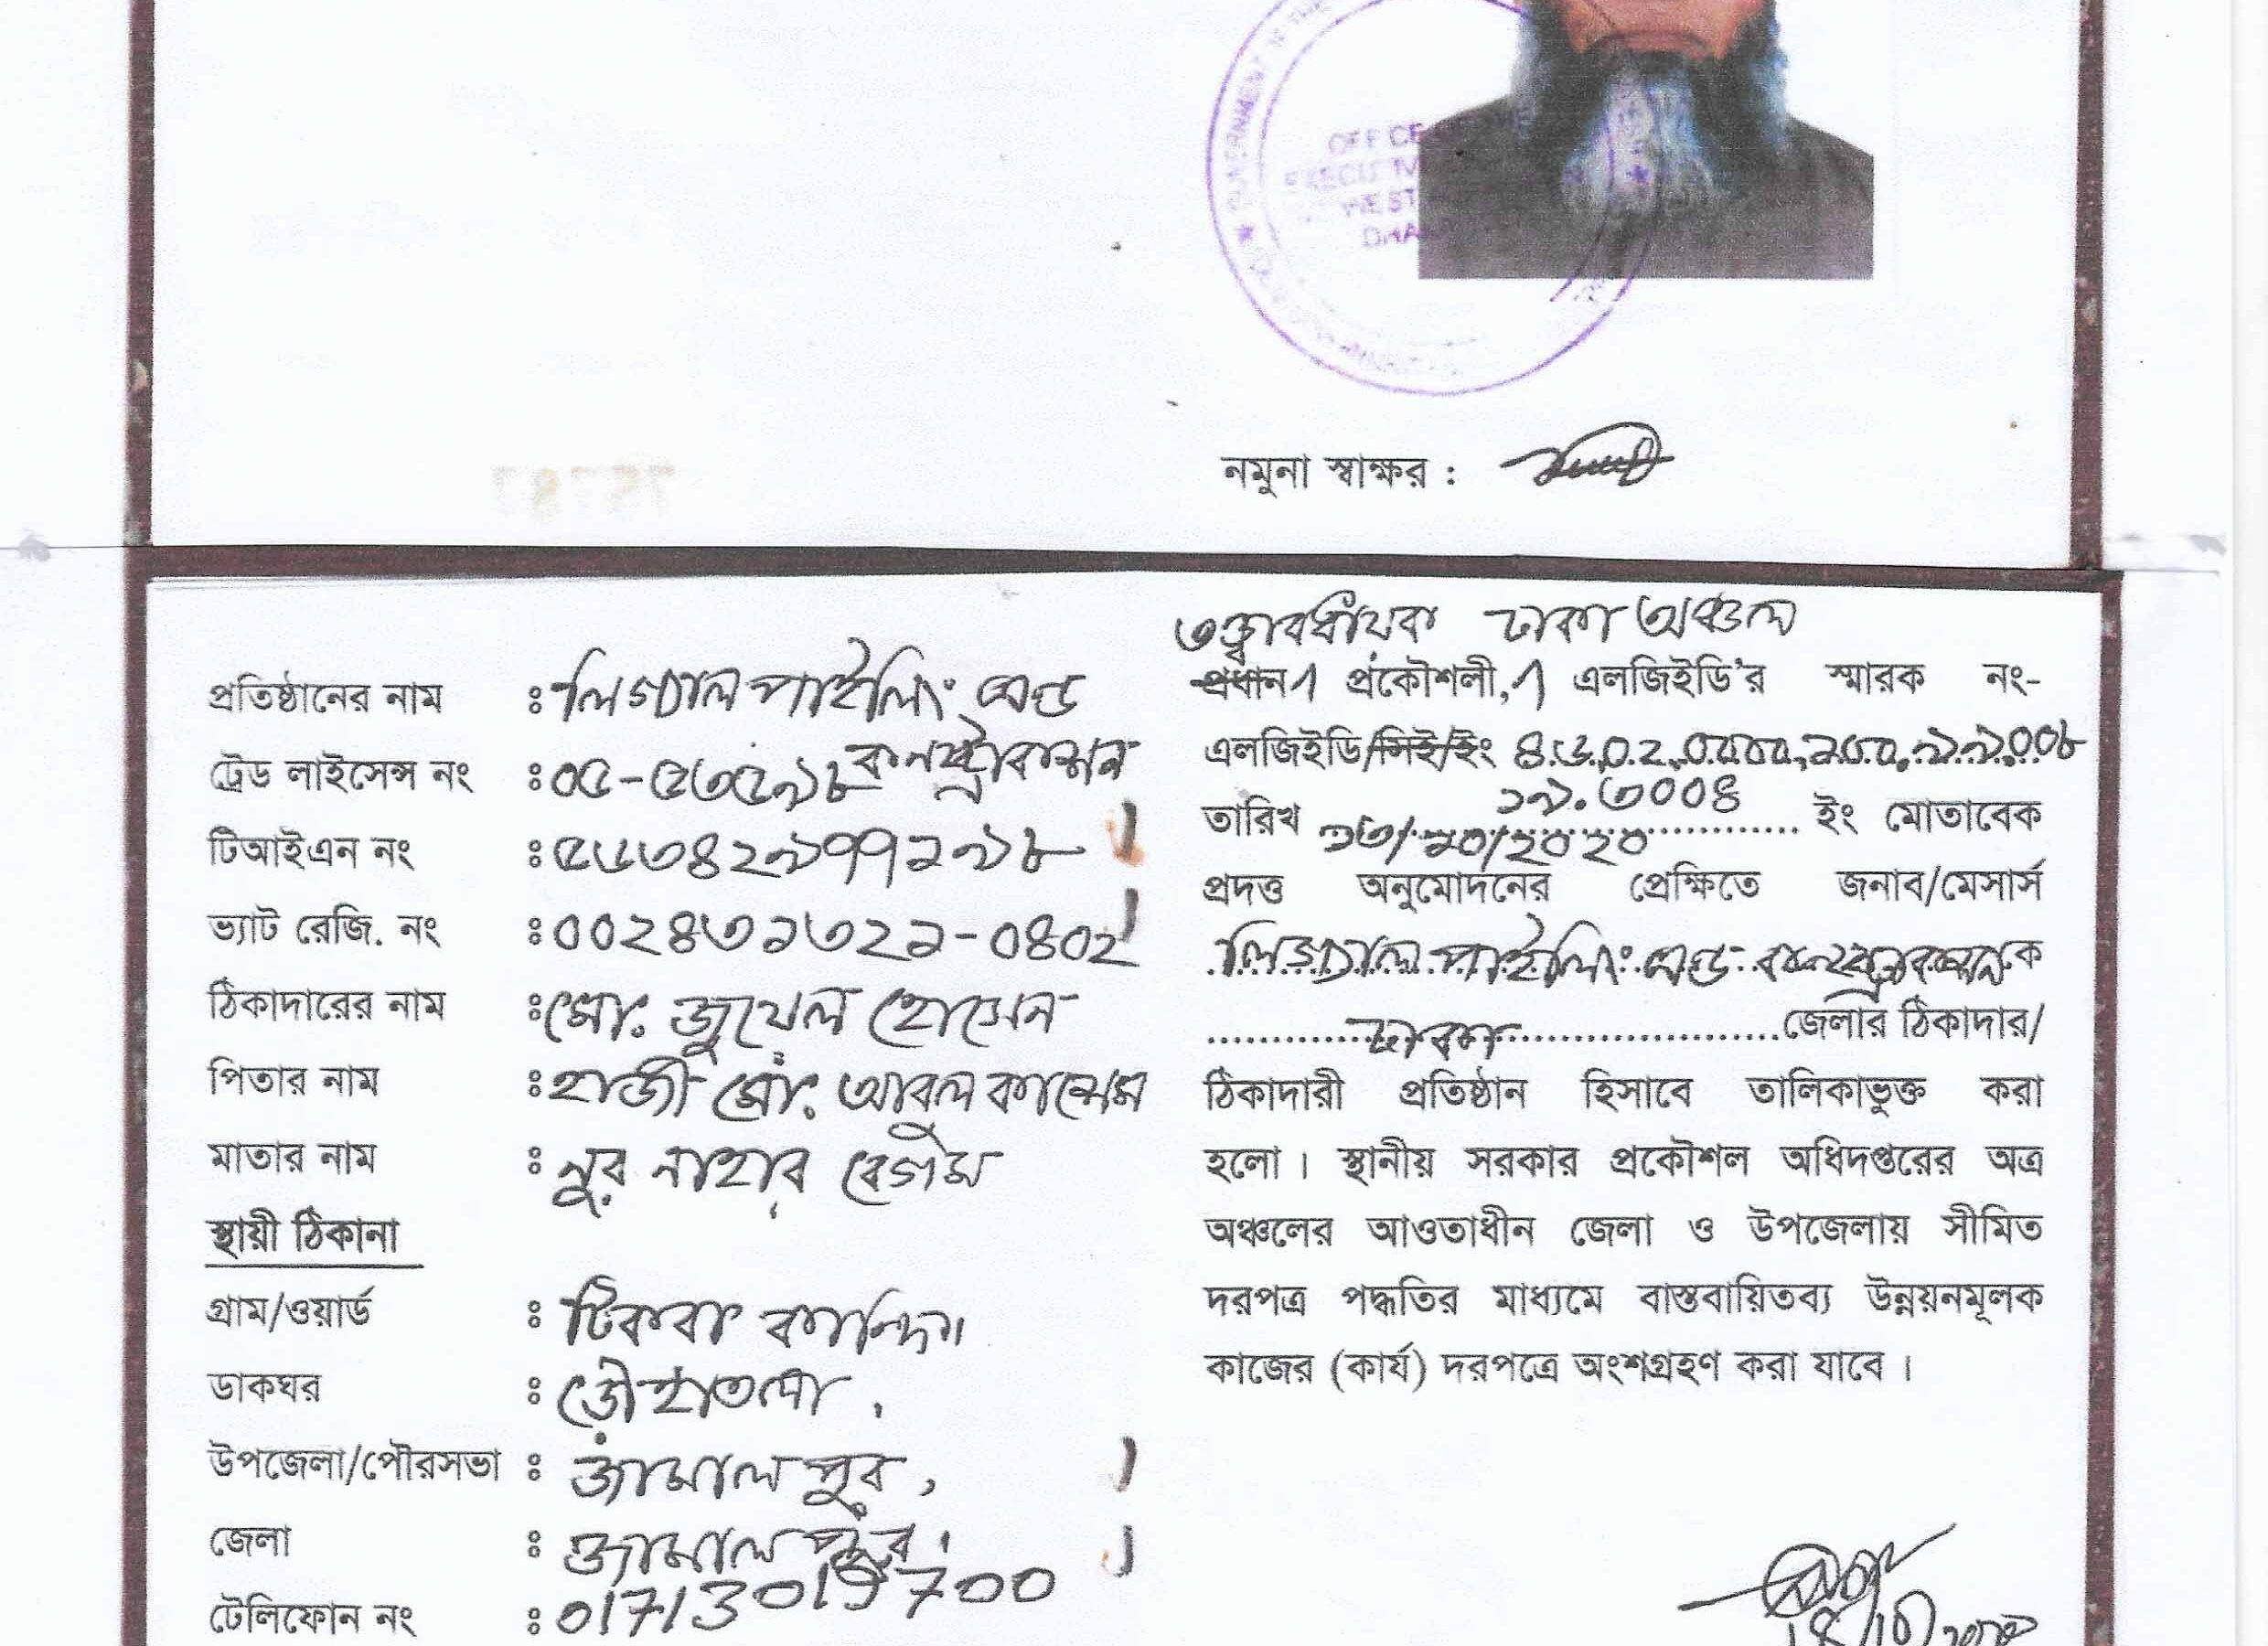 OFFICE
DHA
GOVERNMENT
নমুনা স্বাক্ষর :
প্রতিষ্ঠানের নাম : লিগ্যাল পাইলিং এন্ড
ট্রেড লাইসেন্স নং : ০৫-৫৩৫৯৮ কনস্ট্রাকশন
টিআইএন নং : ৫৬৩৪২৯৭৭২৯৮
ভ্যাট রেজি. নং : ০০২৪৩১৩২১-০৪০২
ঠিকাদারের নাম : মো: জুয়েল হোসেন
পিতার নাম : হাজী মো: আবুল কাশেম
মাতার নাম : নুর নাহার বেগম
স্থায়ী ঠিকানা
গ্রাম/ওয়ার্ড :
ডাকঘর :
উপজেলা/পৌরসভা : জামালপুর,
জেলা : জামালপুর।
টেলিফোন নং : 01713015700
তত্ত্বাবধায়ক ঢাকা অঞ্চল
প্রধান প্রকৌশলী, এলজিইডি'র স্মারক নং-
এলজিইডি/সিই/ইং ৪৬.০২.০০০০.
১৯.৩০০৪
তারিখ ১৩/১০/২০২০ ইং মোতাবেক
প্রদত্ত অনুমোদনের প্রেক্ষিতে জনাব/মেসার্স
লিগ্যাল পাইলিং এন্ড কনস্ট্রাকশন কে
ঢাকা জেলার ঠিকাদার/
ঠিকাদারী প্রতিষ্ঠান হিসাবে তালিকাভুক্ত করা
হলো। স্থানীয় সরকার প্রকৌশল অধিদপ্তরের অত্র
অঞ্চলের আওতাধীন জেলা ও উপজেলায় সীমিত
দরপত্র পদ্ধতির মাধ্যমে বাস্তবায়িতব্য উন্নয়নমূলক
কাজের (কার্য) দরপত্রে অংশগ্রহণ করা যাবে।